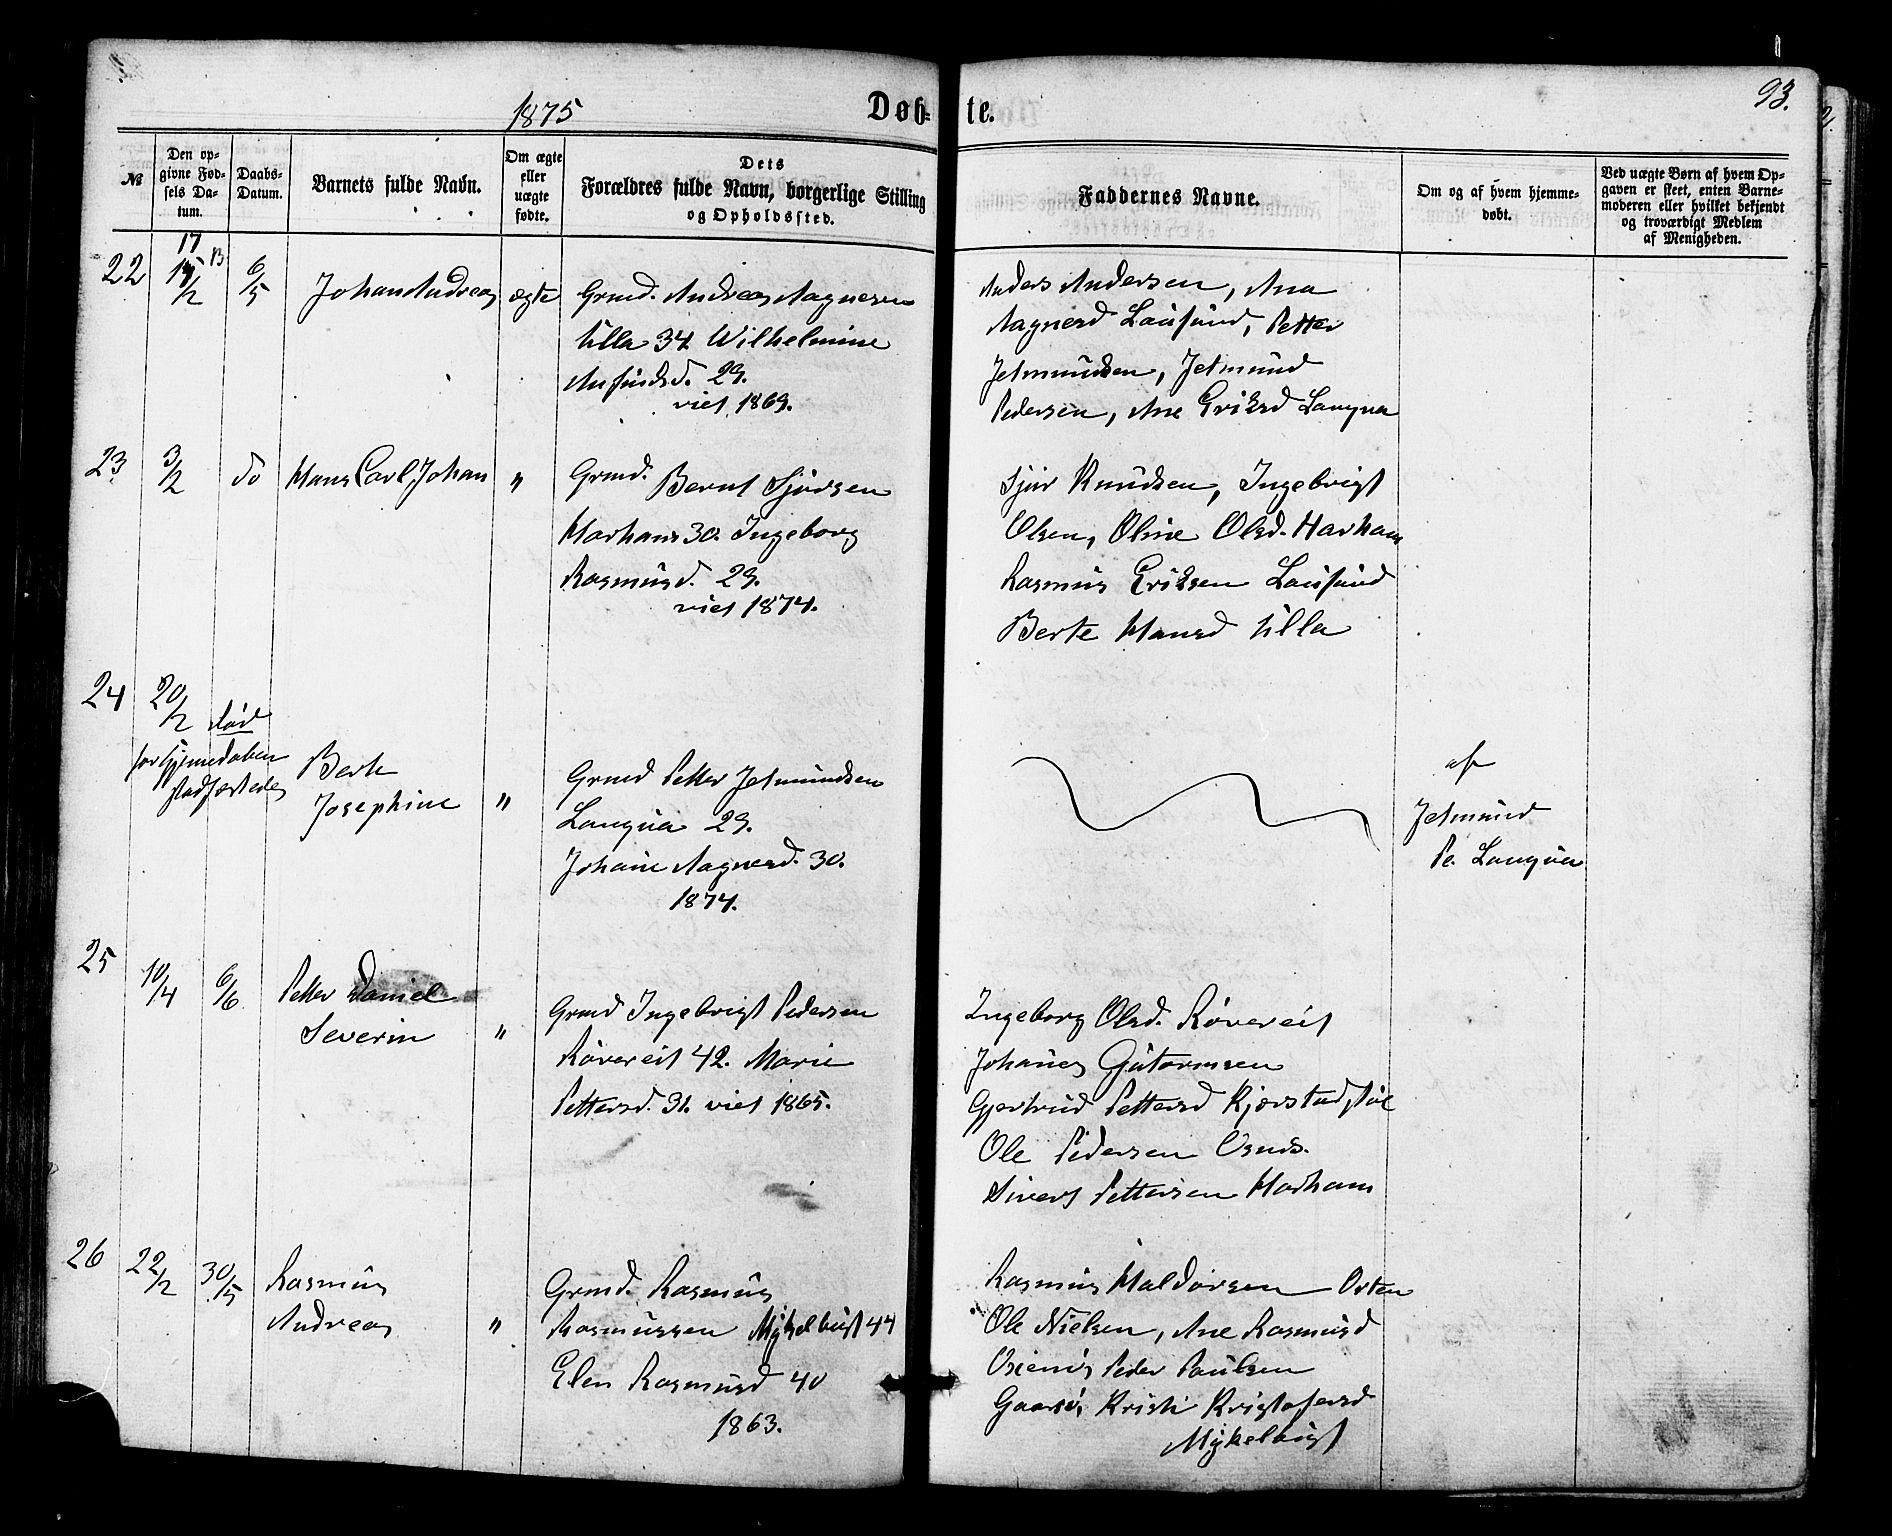 1875
Døb-
te.
93.
№
Den op-
givne Fød-
sels Da-
tum.
Daabs-
Datum.
Barnets fulde Navn.
Om ægte
eller
uægte
fødte.
Dets
Forældres fulde Navn, borgerlige Stilling
og Opholdssted.
Faddernes Navne.
Om og af hvem hjemme-
døbt.
Ved uægte Børn af hvem Op-
gaven er skeet, enten Barne-
moderen eller hvilket bekjendt
og troværdigt Medlem
af Menigheden.
22
17
/2
6/5
Johan Andreas
ægte
Grmd. Andreas Aagnesen
Ulla 34 Wilhelmine
Anfindsd. 29.
viet 1869.
Anders Andersen, Ana
Aagnesd Lausund, Petter
Jetmundsen, Jetmund
Pedersen, Ane Eriksd Langva
23
3/2
do
Hans Carl Johan
"
Grmd. Bernt Sjursen
Harhams 30. Ingeborg
Rasmusd. 29.
viet 1874.
Sjur Knudsen, Ingebrigt
Olsen, Oline Olsd. Harham
Rasmus Eriksen Lausund
Berte Hansd Ulla
24
20/2
død
før Hjemedaben
stadfæstedes
Berte
Josephine
"
Grmd Petter Jetmundsen
Langva 29.
Johane Aagnesd. 30.
1874.
af
Jetmund
Pe. Langva
25
10/4
6/6
Petter Daniel
Severin
"
Grmd Ingebrigt Pedersen
Røvereit 42. Marie
Pettersd. 31. viet 1865.
Ingeborg Olsd. Røvereit
Johanes Gutormsen
Gjertrud Pettersd Kjærstadstøl
Ole Pedersen
Sivert Pettersen Harham
26
22/2
30/5
Rasmus
Andreas
"
Grmd. Rasmus
Rasmussen Myklebust 44
Elen Rasmusd 40
1863.
Rasmus Haldorsen Osten
Ole Nielsen, Ane Rasmusd
Peder Paulsen
Kristi Kristofersd
Mykelbust